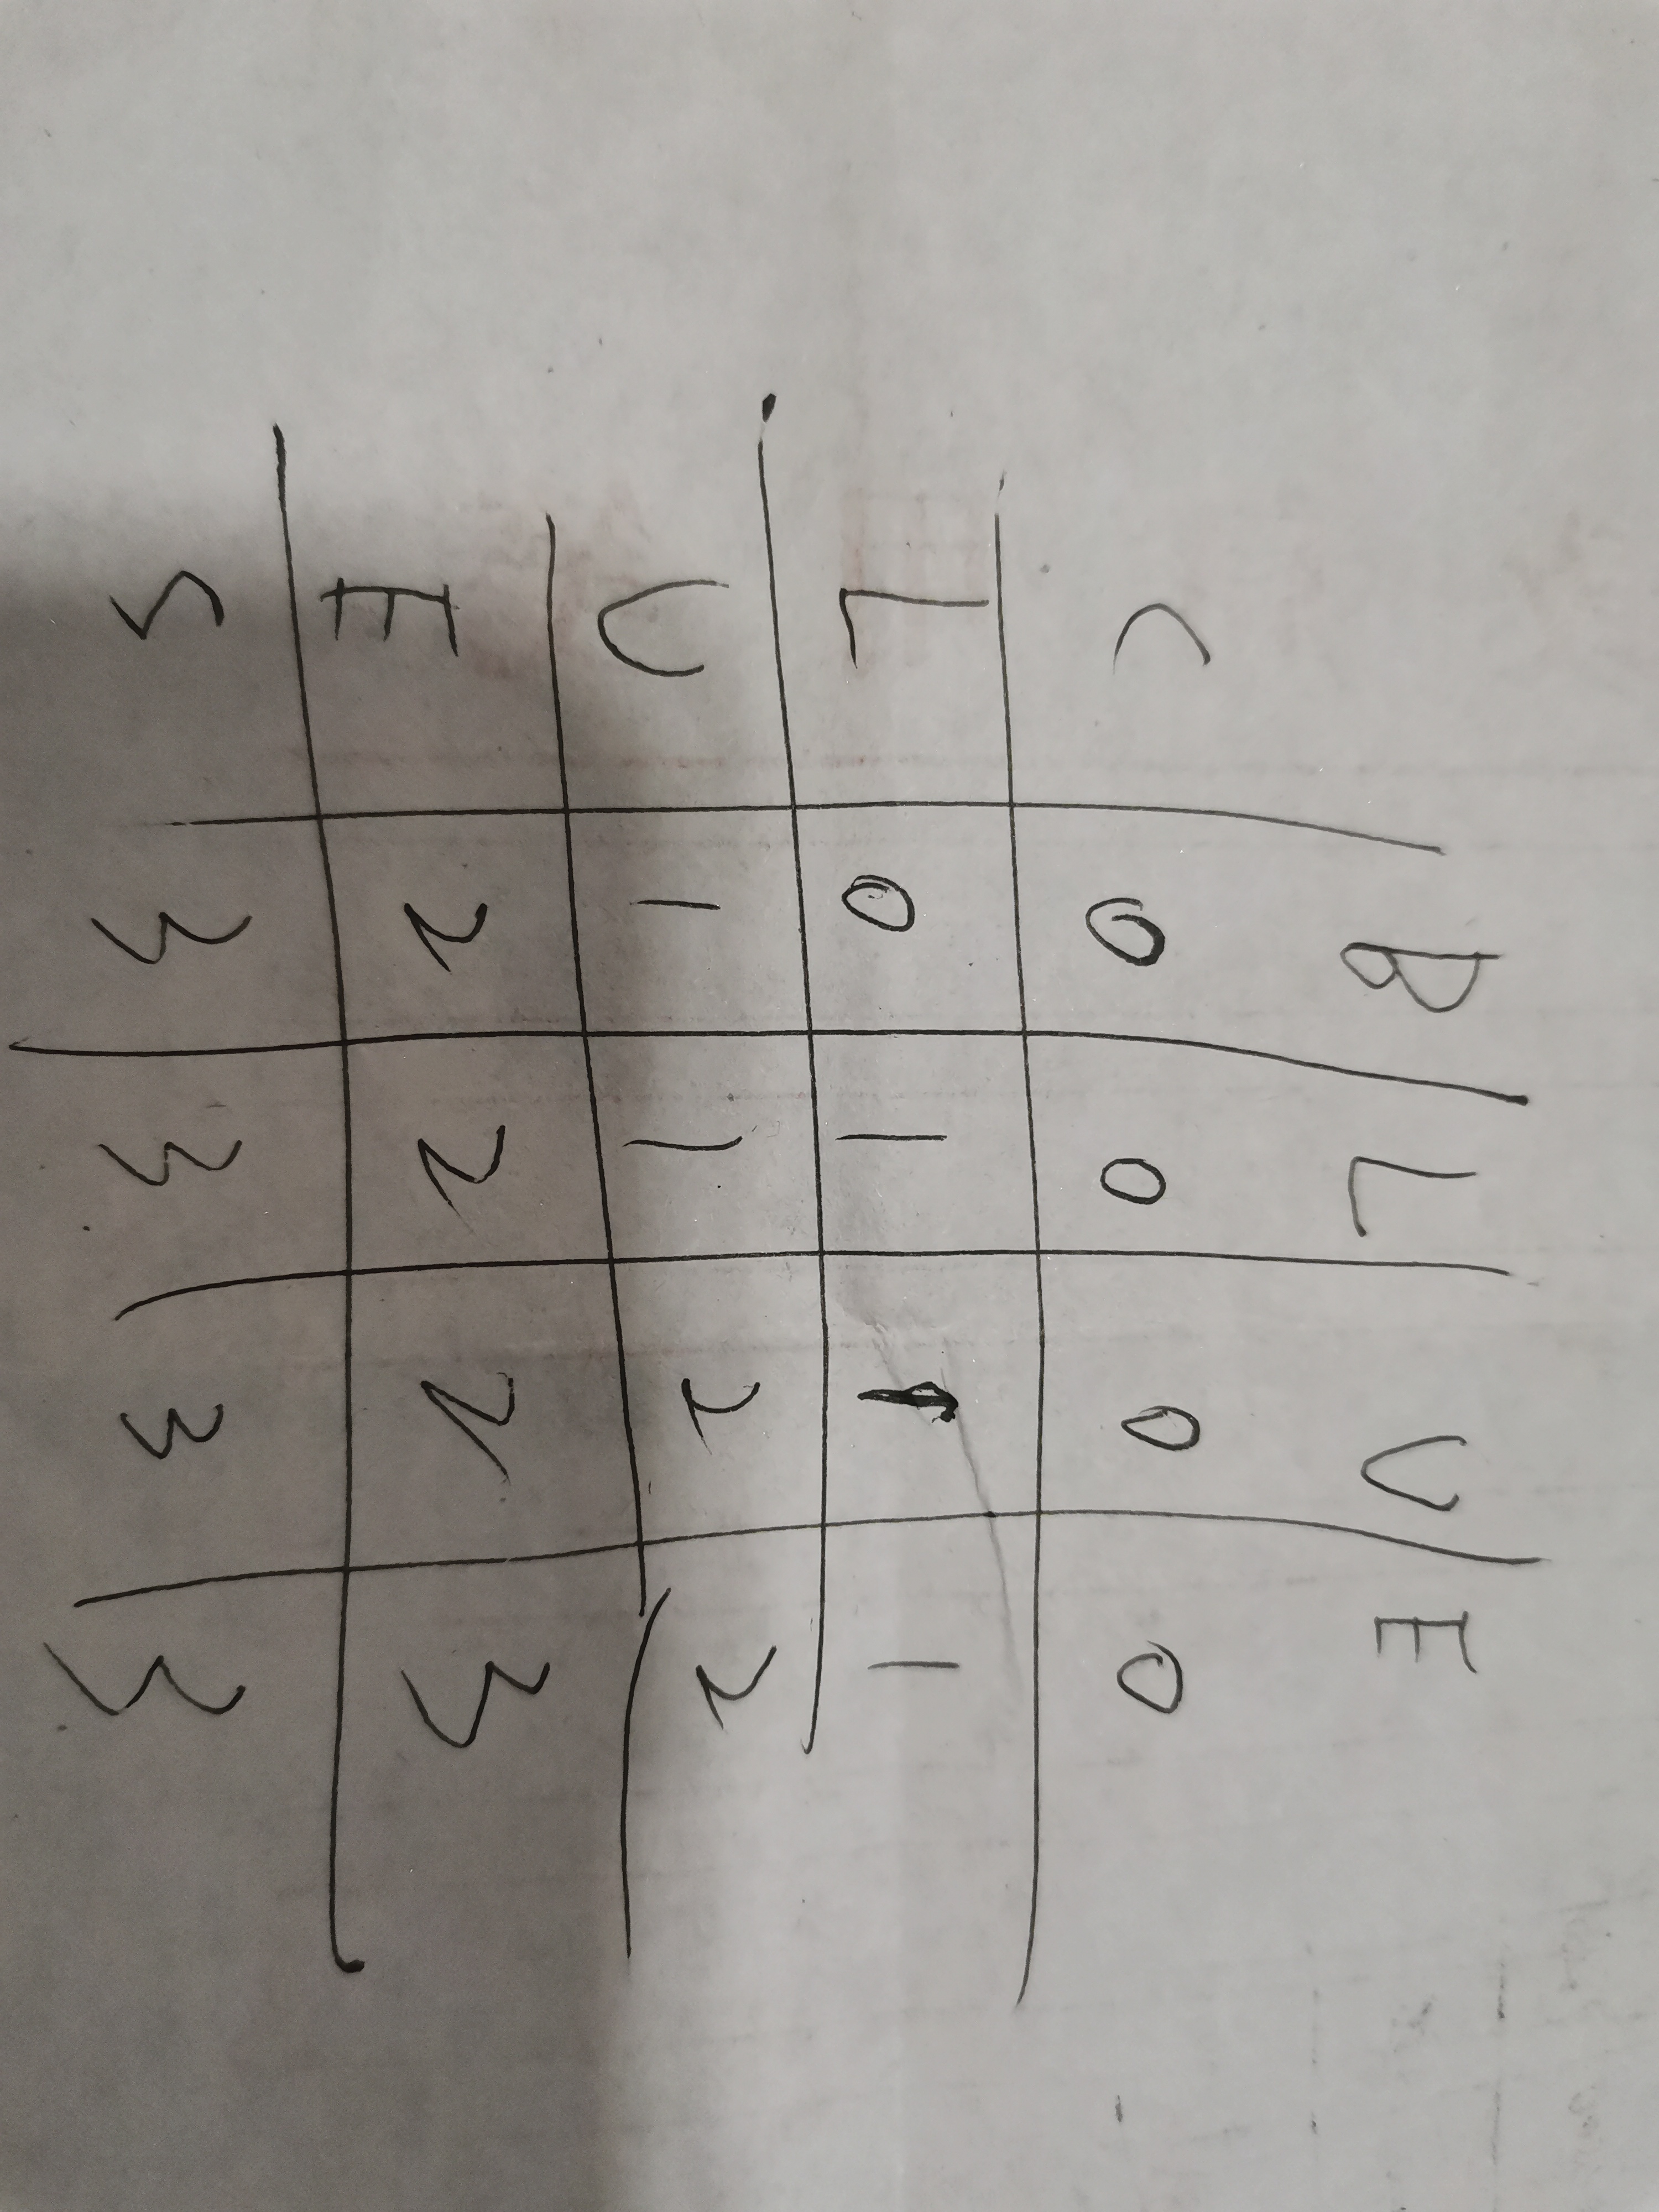 B L U E
C 0 0 0 0
L 0 1 1 1
U 1 1 2 2
E 2 2 2 3
S 3 3 3 3